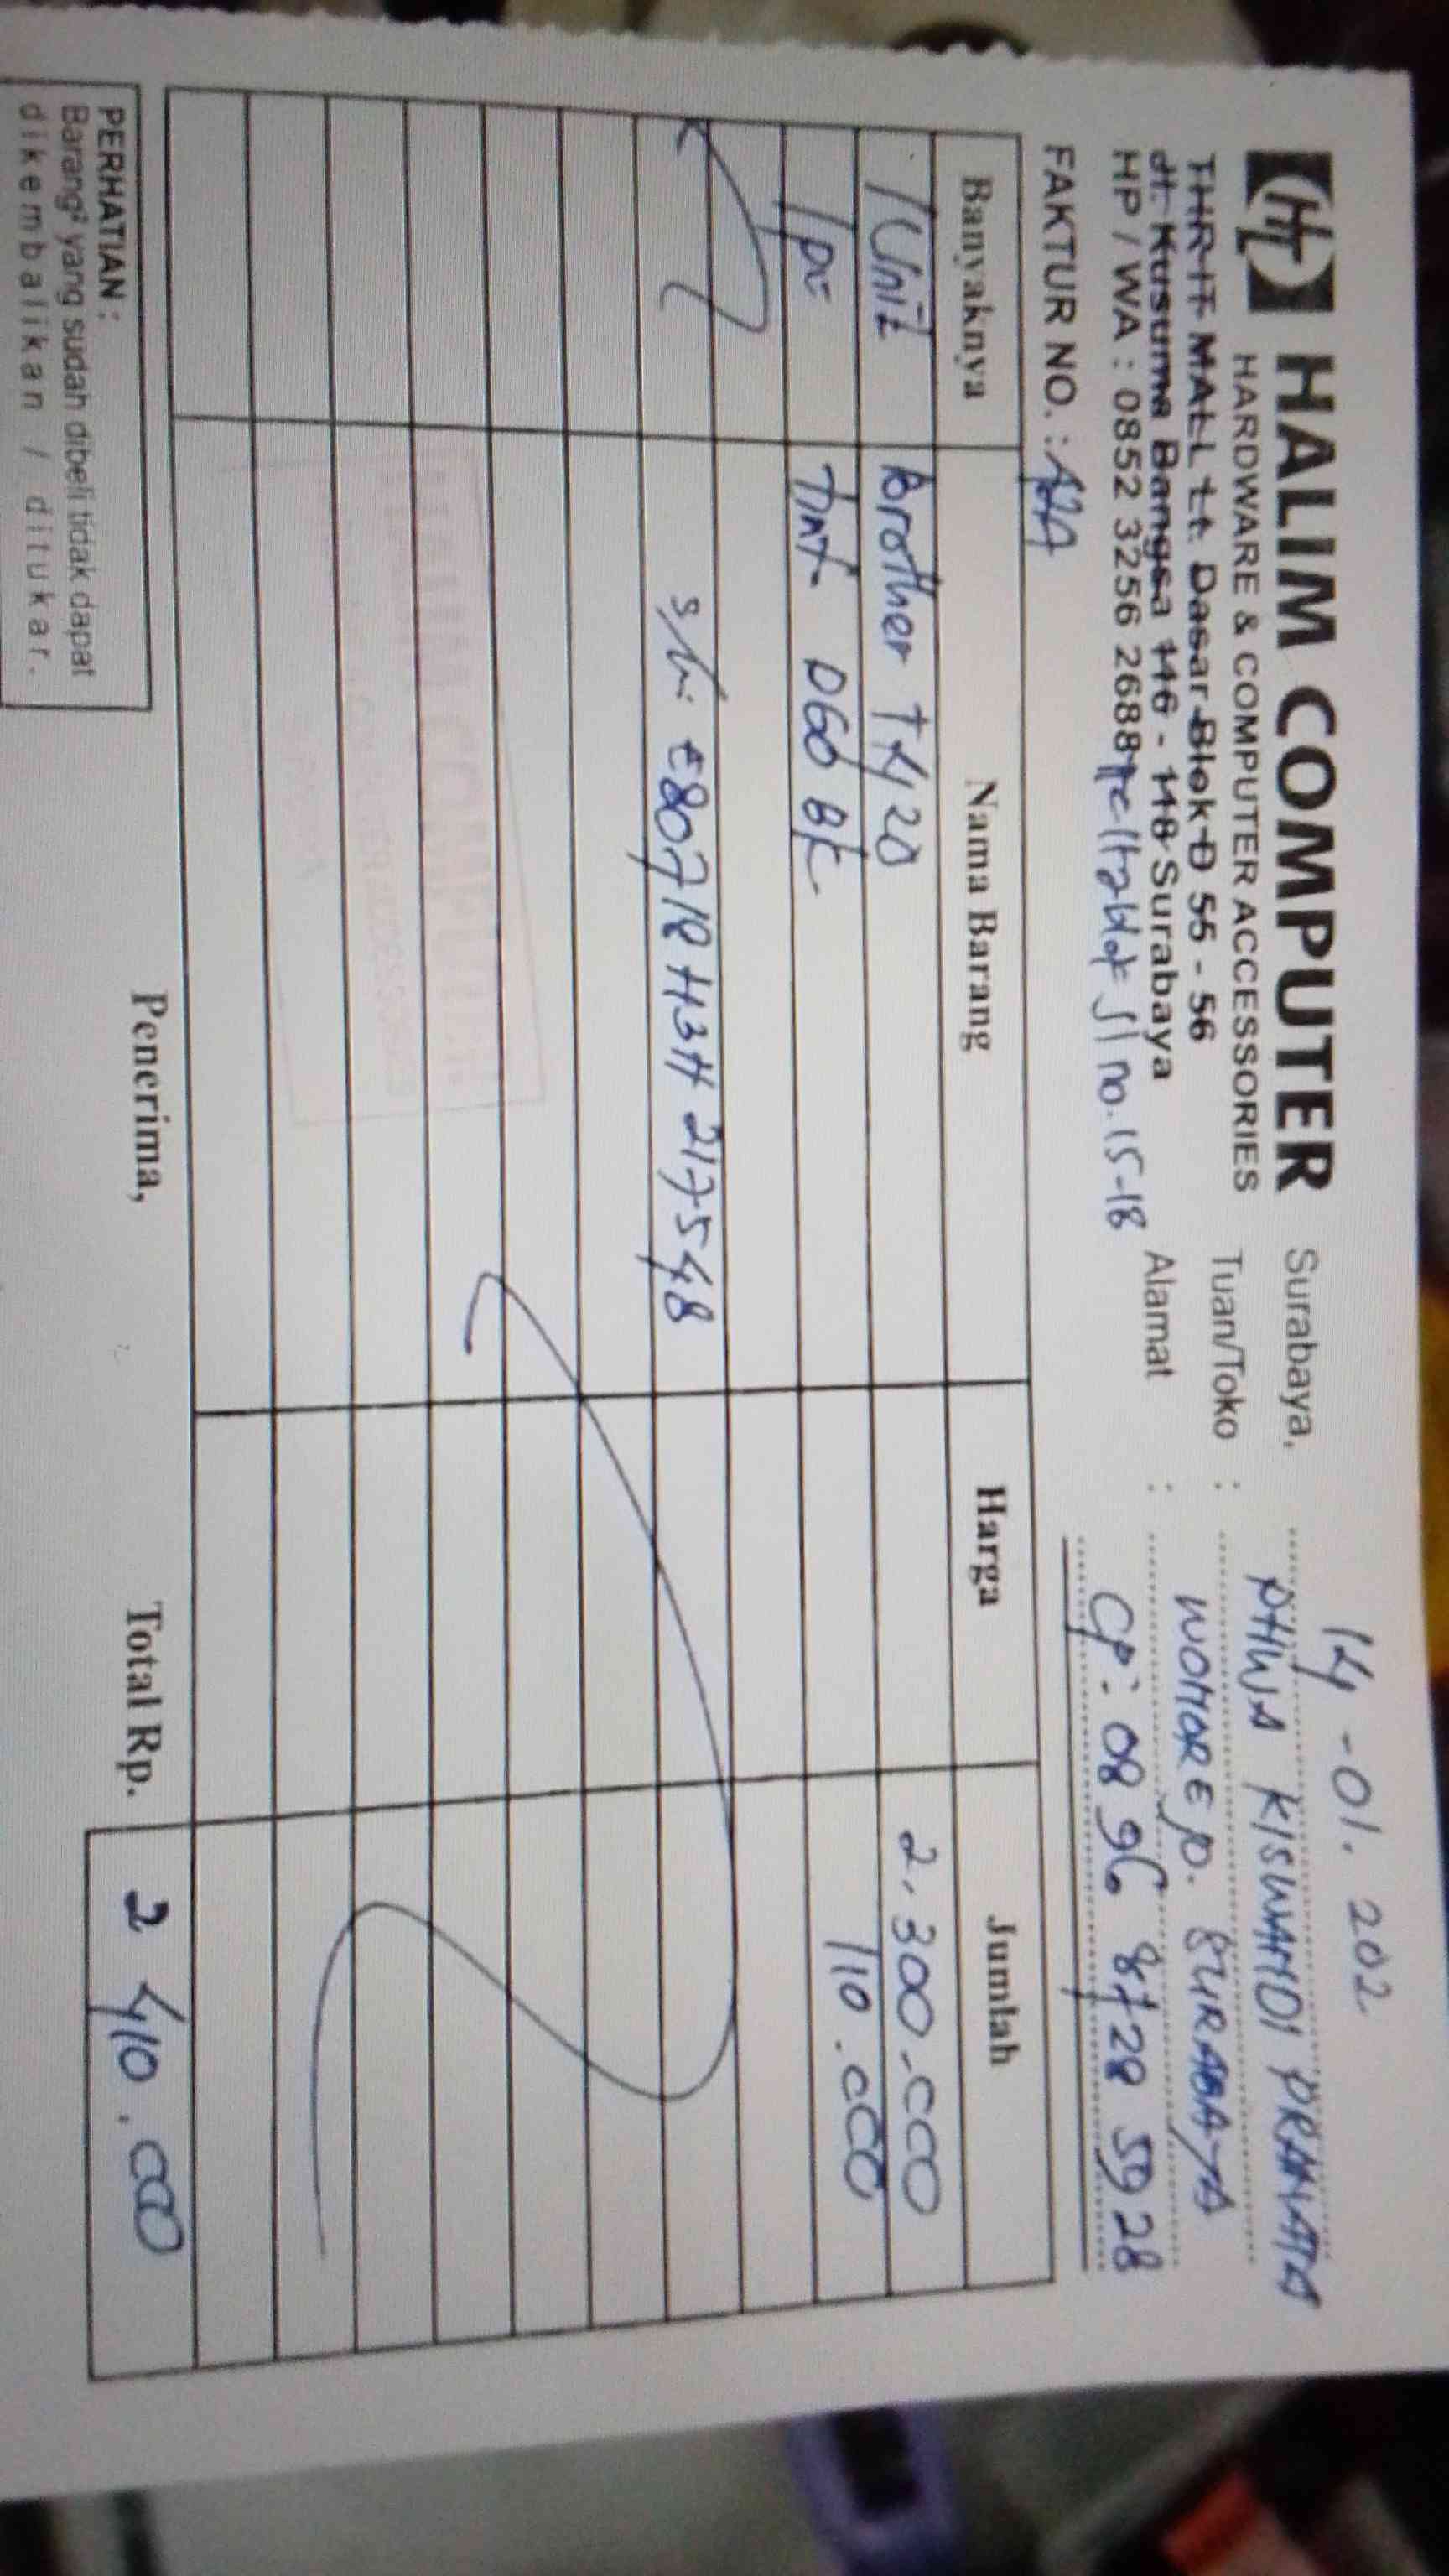 HALIM COMPUTER
HARDWARE & COMPUTER ACCESSORIES
THR IT MALL Lt. Dasar Blok D 55 - 56
Jl. Kusuma Bangsa 116 - 118 Surabaya
HP / WA : 0852 3256 2688 no. 15-18
FAKTUR NO. :
Surabaya, 14 -01. 202
Tuan/Toko : KISWANDI PRANATA
Alamat : WONOREJO. SURABAYA
CP : 08 96 8728 5928
Banyaknya Nama Barang Harga Jumlah
1 Unit Brother T420 2.300.000
1 pc Tint D60 BK 110.000
S/N: E80718H3H217548
PERHATIAN :
Barang² yang sudah dibeli tidak dapat
dikembalikan / ditukar.
Penerima,
Total Rp. 2 410.000